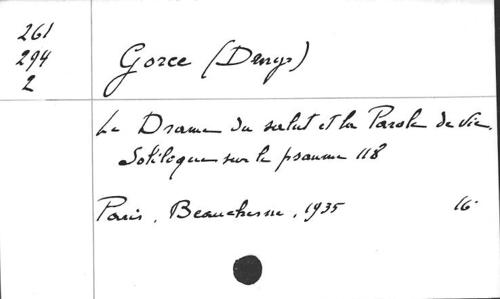 261
294
2
Gorce (Denys)
Le Drame du salut et la Parole de vie.
Soliloque sur le psaume 118
Paris, Beauchesne, 1935 16°